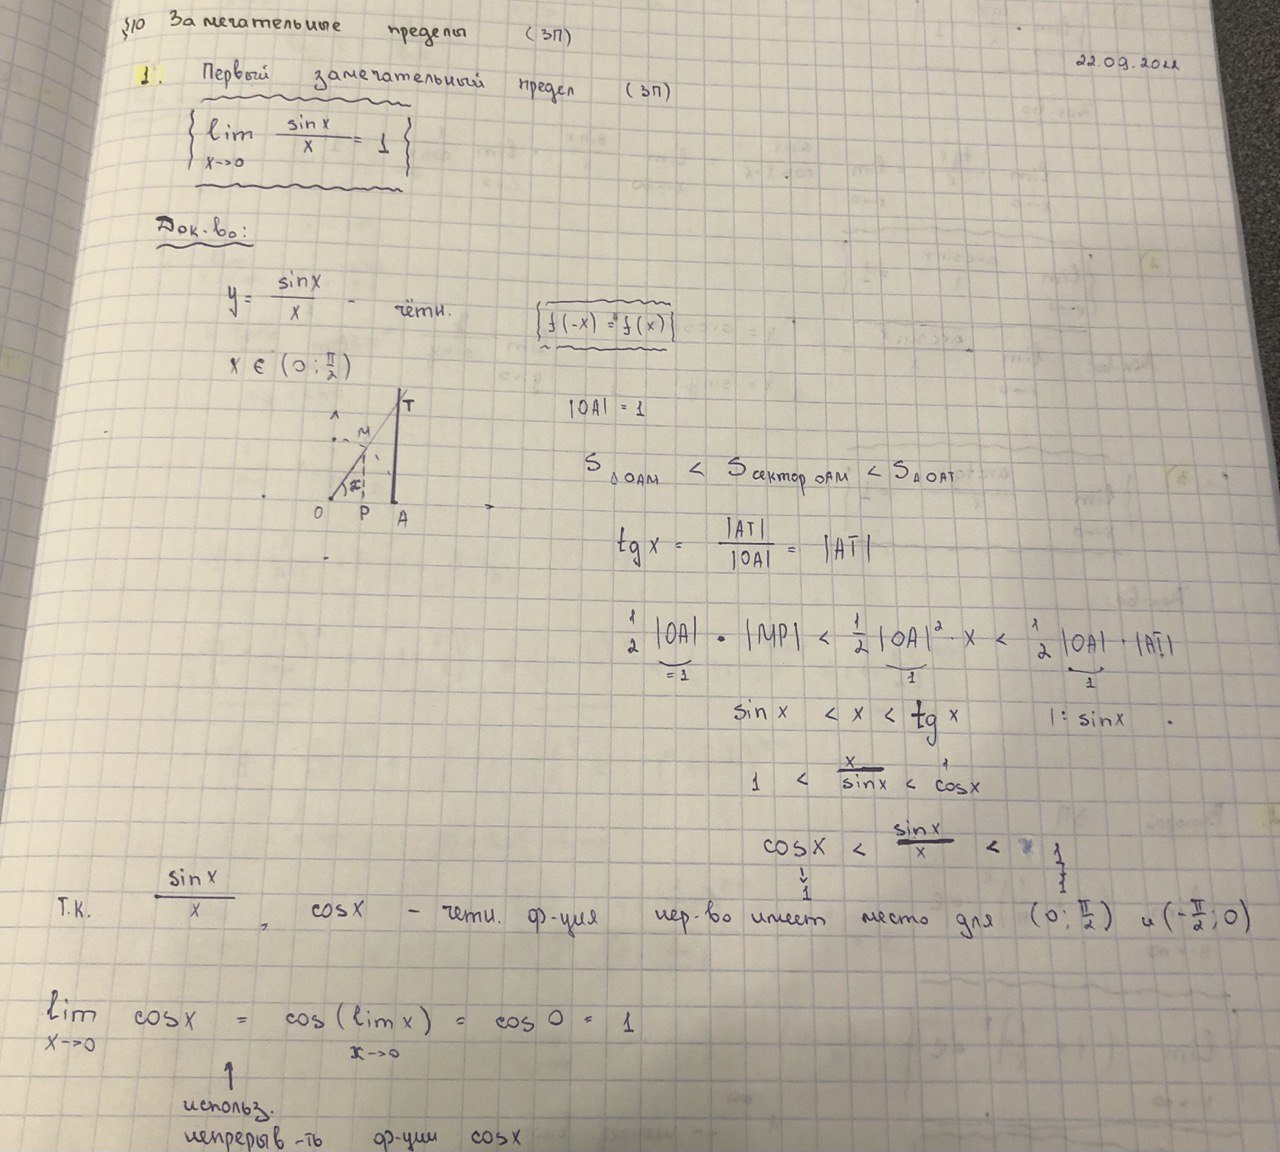 §10 Замечательные пределы (ЗП)
22.09.2022
1. Первый замечательный предел (ЗП)
lim x→0 sinx/x = 1
Док-во:
y = sinx/x - чётн. f(-x) = f(x)
x ∈ (0; π/2)
T
M
x
O P A
|OA| = 1
S△OAM < Sсектор OAM < S△OAT
tg x = |AT|/|OA| = |AT|
1/2 |OA| · |MP| < 1/2 |OA|² · x < 1/2 |OA| · |AT|
=1 1 1
sin x < x < tg x |: sinx
1 < x/sinx < 1/cosx
cosx < sinx/x < 1
↓ 1 ↓ 1
Т.к. sinx/x, cosx - четн. ф-ция нер-во имеет место для (0; π/2) и (-π/2; 0)
lim x→0 cosx = cos(lim x→0 x) = cos 0 = 1
↑
использ.
непрерыв-ть ф-ции cosx